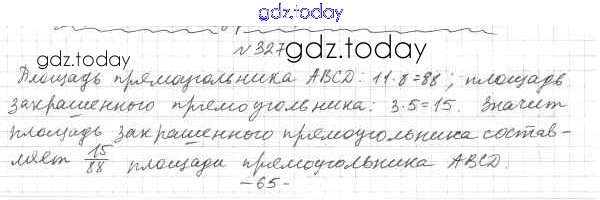 gdz.today
№ 327 gdz.today
gdz.today
Площадь прямоугольника ABCD: 11·8=88; площадь
закрашенного прямоугольника: 3·5=15. Значит
площадь закрашенного прямоугольника состав-
ляет 15/88 площади прямоугольника ABCD.
-65-